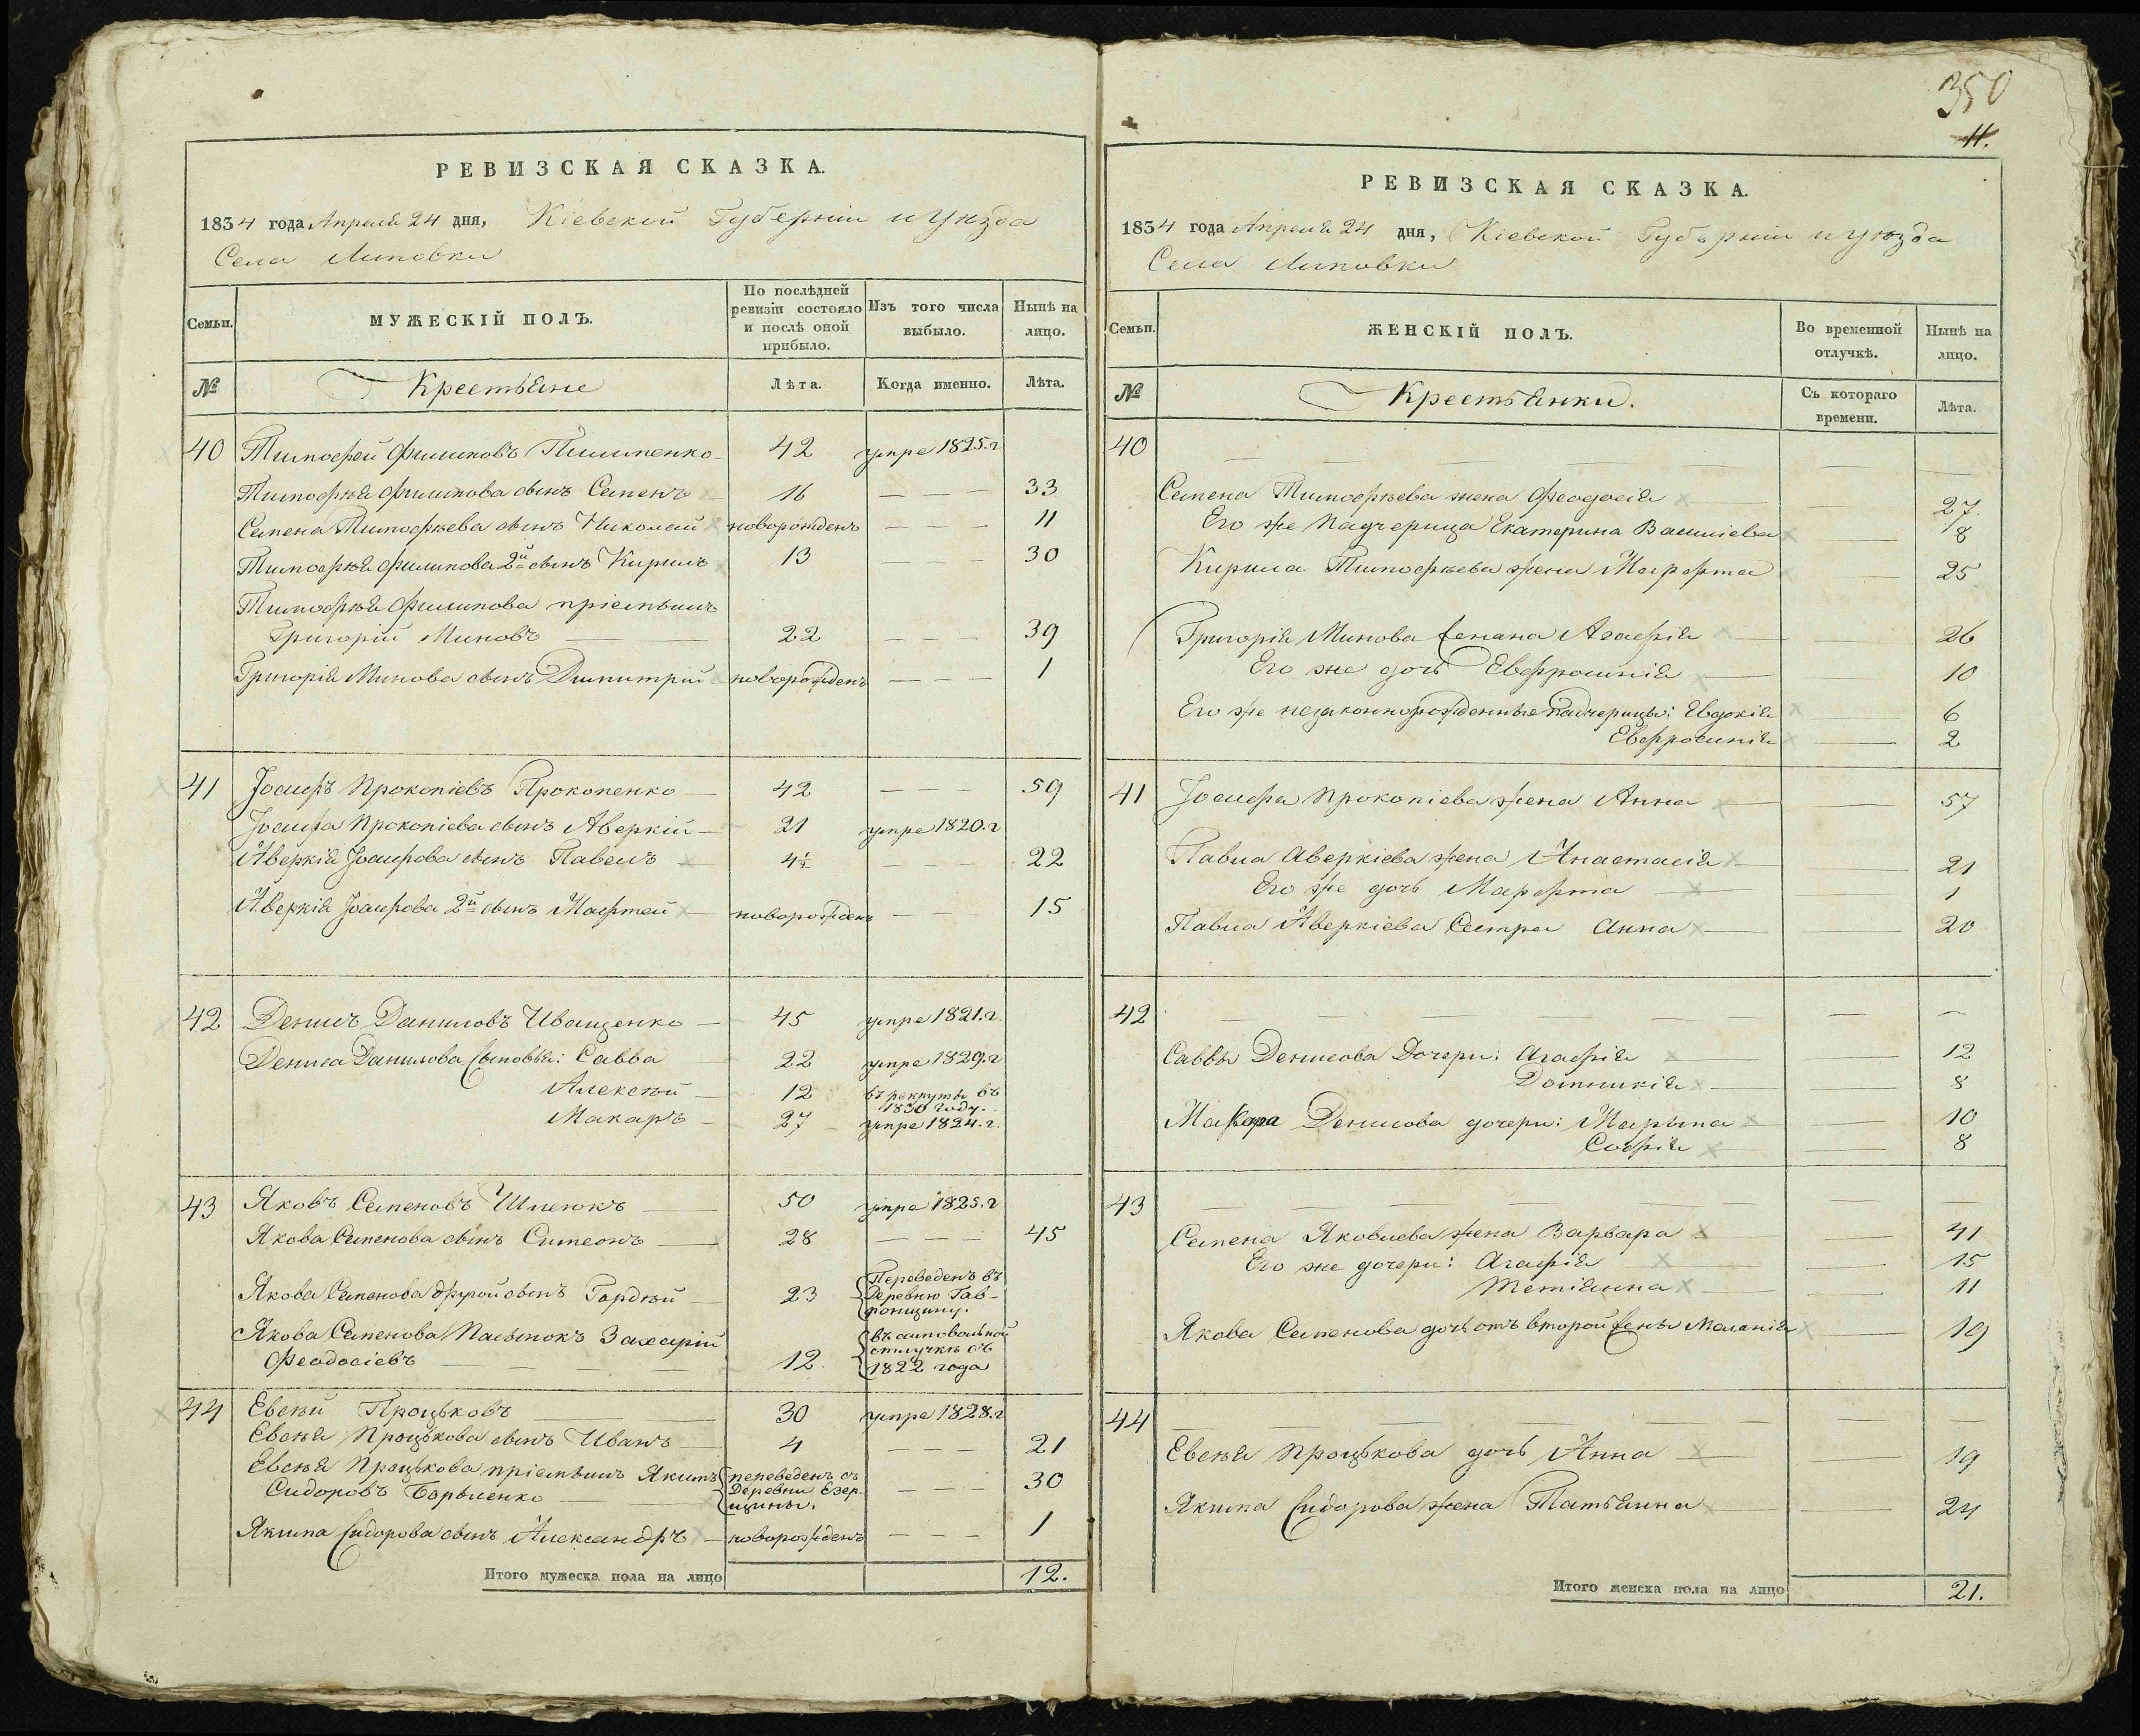 РЕВИЗСКАЯ СКАЗКА.
1834 года Апреля 24 дня, Кіевской Губерніи и уѣзда
Села Липовки
Семьи.
МУЖЕСКІЙ ПОЛЪ.
По послѣдней
ревизіи состояло
и послѣ оной
прибыло.
Изъ того числа
выбыло.
Нынѣ на
лицо.
№
Крестьяне
Лѣта.
Когда именно.
Лѣта.
40 Тимофей Филиповъ Пилипенко 42 умре 1825.г
Тимофѣя Филипова сынъ Семенъ 16 33
Семена Тимофѣева сынъ Николай новорожденъ 11
Тимофѣя Филипова 2й сынъ Кирилъ 13 30
Тимофѣя Филипова пріемышъ
Григорій Миновъ 22 39
Григорія Минова сынъ Димитрій новорожденъ 1
41 Іосифъ Прокопіевъ Прокопенко 42 59
Іосифа Прокопіева сынъ Аверкій 21 умре 1820.г
Аверкія Іосифова сынъ Павелъ 4½ 22
Аверкія Іосифова 2й сынъ Марфтей новорожденъ 15
42 Денисъ Даниловъ Иващенко 45 умре 1821.г.
Дениса Данилова сыновья: Савва 22 умре 1829.г
Алексѣй 12 въ рекруты въ
1830 году.
Макаръ 27 умре 1824.г.
43 Яковъ Семеновъ Шлеюкъ 50 умре 1825.г
Якова Семенова сынъ Симеонъ 28 45
Якова Семенова другой сынъ Гордѣй 23 Переведенъ въ
Деревню Гав-
ронщину.
Якова Семенова Пасынокъ Захарій
Феодосіевъ 12. въ самовольной
отлучкѣ съ
1822 года
44 Евсѣй Процьковъ 30 умре 1828.г
Евсѣя Процькова сынъ Иванъ 4 21
Евсѣя Процькова пріемышъ Якимъ переведенъ съ
Сидоровъ Борысенко Деревни Езер-
щины. 30
Якима Сидорова сынъ Александръ новорожденъ 1
Итого мужеска пола на лицо 12.
350
11.
РЕВИЗСКАЯ СКАЗКА.
1834 года Апреля 24 дня, Кіевской Губерніи и уѣзда
Села Липовки
Семьи.
ЖЕНСКІЙ ПОЛЪ.
Во временной
отлучкѣ.
Нынѣ на
лицо.
№
Крестьянки.
Съ котораго
времени.
Лѣта.
40
Семена Тимофѣева жена Феодосія 27
Его же Падчерица Екатерина Василіева 8
Кирила Тимофѣева жена Марфта 25
Григорія Минова жена Агафія 26
Его же дочь Евфросинія 10
Его же незаконнорожденные Падчерицы: Евдокія 6
Евфросинія 2
41 Іосифа Прокопіева жена Анна 57
Павла Аверкіева жена Анастасія 21
Его же дочь Марфта 1
Павла Аверкіева Сестра Анна 20
42
Саввы Денисова Дочери: Агафія 12
Домникія 8
Макара Денисова дочери: Марына 10
Софія 8
43
Семена Яковлева жена Варвара 41
Его же дочери: Агафія 15
Тетіянна 11
Якова Семенова дочь отъ второй жены Меланія 19
44
Евсѣя Процькова дочь Анна 19
Якима Сидорова жена Татьянна 24
Итого женска пола на лицо 21.